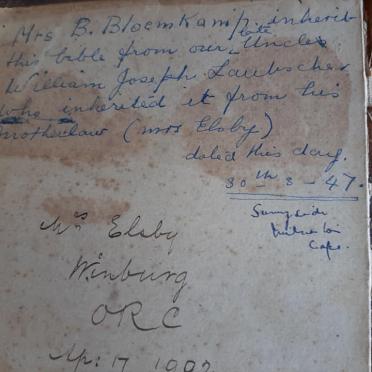 Mrs B. Bloemkamp. inherit
this bible from our late Uncle
William Joseph Laubscher
who inherited it from his
motherlaw (mrs Elsby)
dated this day.
30th - 8 - 47.
Sunnyside
Cape.
Mrs Elsby
Winburg
ORC
Ap: 17 1902